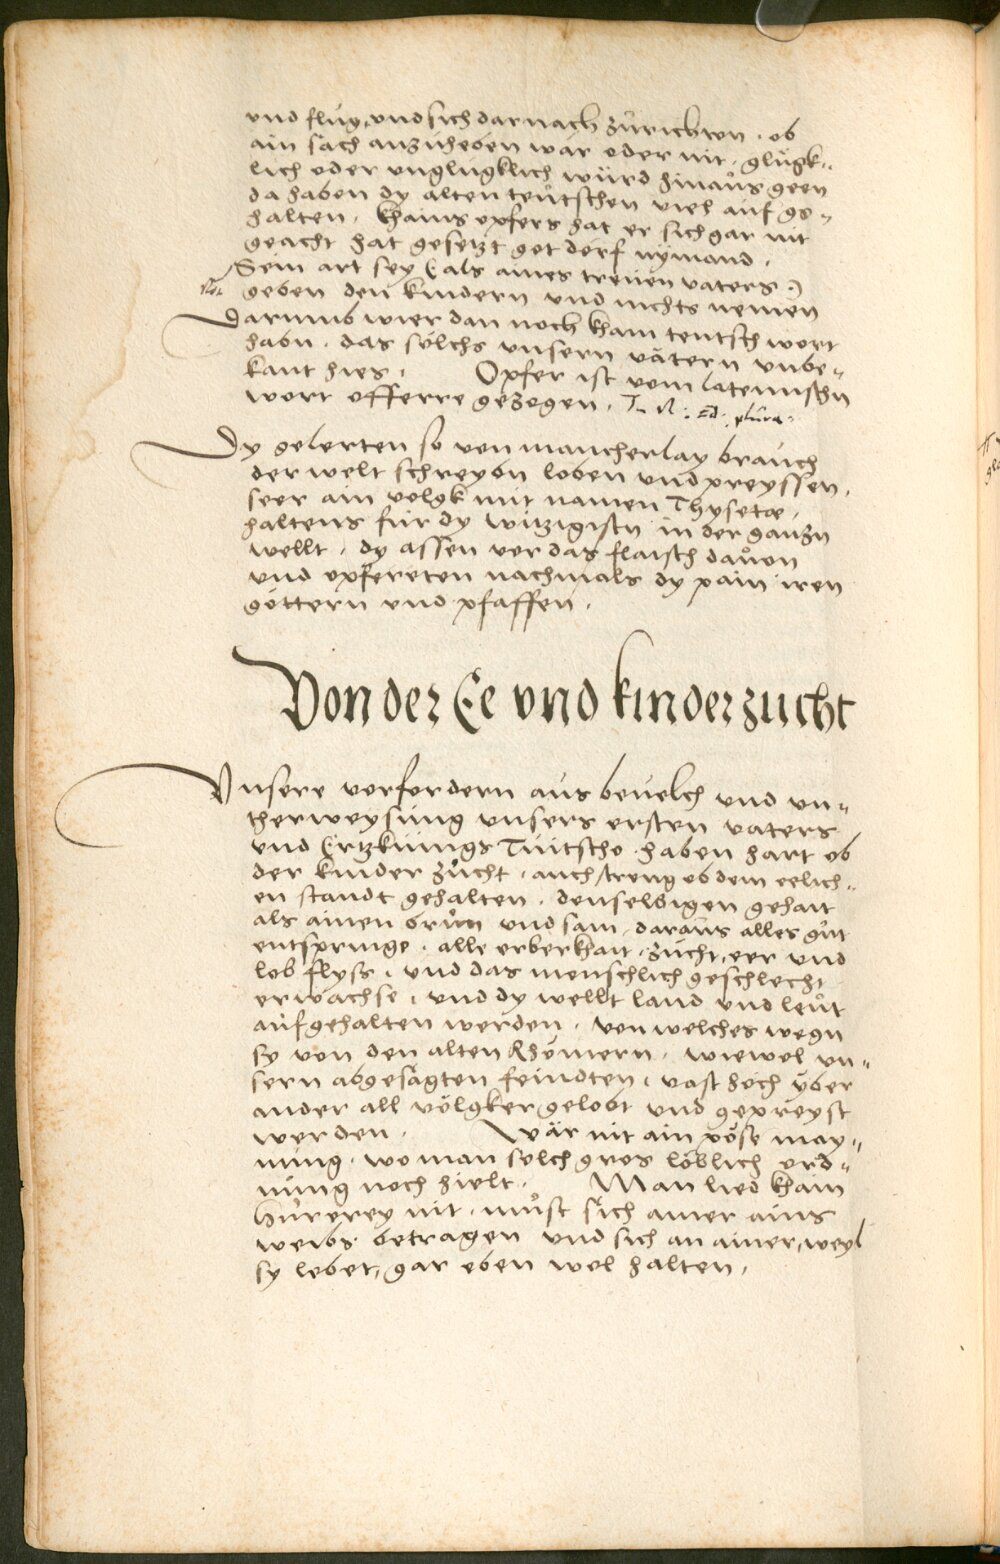 vnd flug, vnd sich darnach zůrichten . ob
ain sach anzuheben wär oder nit . glügk=
lich oder vnglugklich würd hinaůs geen
da haben dy alten teůtschen viel auf ge=
halten . khains opfers hat er sich gar nit
geacht hat gesetzt got dörf nymand .
Sein art sey ( als aines treuen vaters )
geben den kindern vnd nichts nemen
Darumb wier dan noch kham teutsch wort
habn . das sölchs vnsern vätern vnbe=
kant hies . Opfer ist vom lateinischn
wort offerre gezogen .
Dy gelerten so von mancherlay brauch
der welt schreybn loben vnd preyssen .
seer ain volgk mit namen Thysetæ .
haltens für dy witzigistn in der ganzn
wellt . dy assen vor das flaisch dauon
vnd opfereten nachmals dy pain iren
göttern vnd pfaffen .
Von der Ee vnd kinderzucht
Vnsere vorfordern aus beuelch vnd vn=
therweysung vnsers ersten vaters
vnd Ertzkünigs Tuitscho . haben hart ob
der kinder zůcht . auch streng ob dem eelich=
en standt gehalten . denselbigen gehait
als ainen brůn vnd sam . daraůs alles gůt
entspringe . alle erberkhait . zucht, eer vnd
lob flyss . vnd das menschlich geschlecht
erwachse . vnd dy wellt land vnd leůt
aufgehalten werden . von welches wegn
sy von den alten Rhömern . wiewol vn=
sern abgesagten feindten . vast hoch yber
ander all völgker gelobt vnd gepreyst
werden . Wär nit ain pöse may=
nung . wo man solch gros löblich ord=
nůng noch hielt . Man lied kham
hůrerey nit . můst sich ainer ains
weibs betragen vnd sich an ainer, weyl
sy lebet, gar eben wol halten .